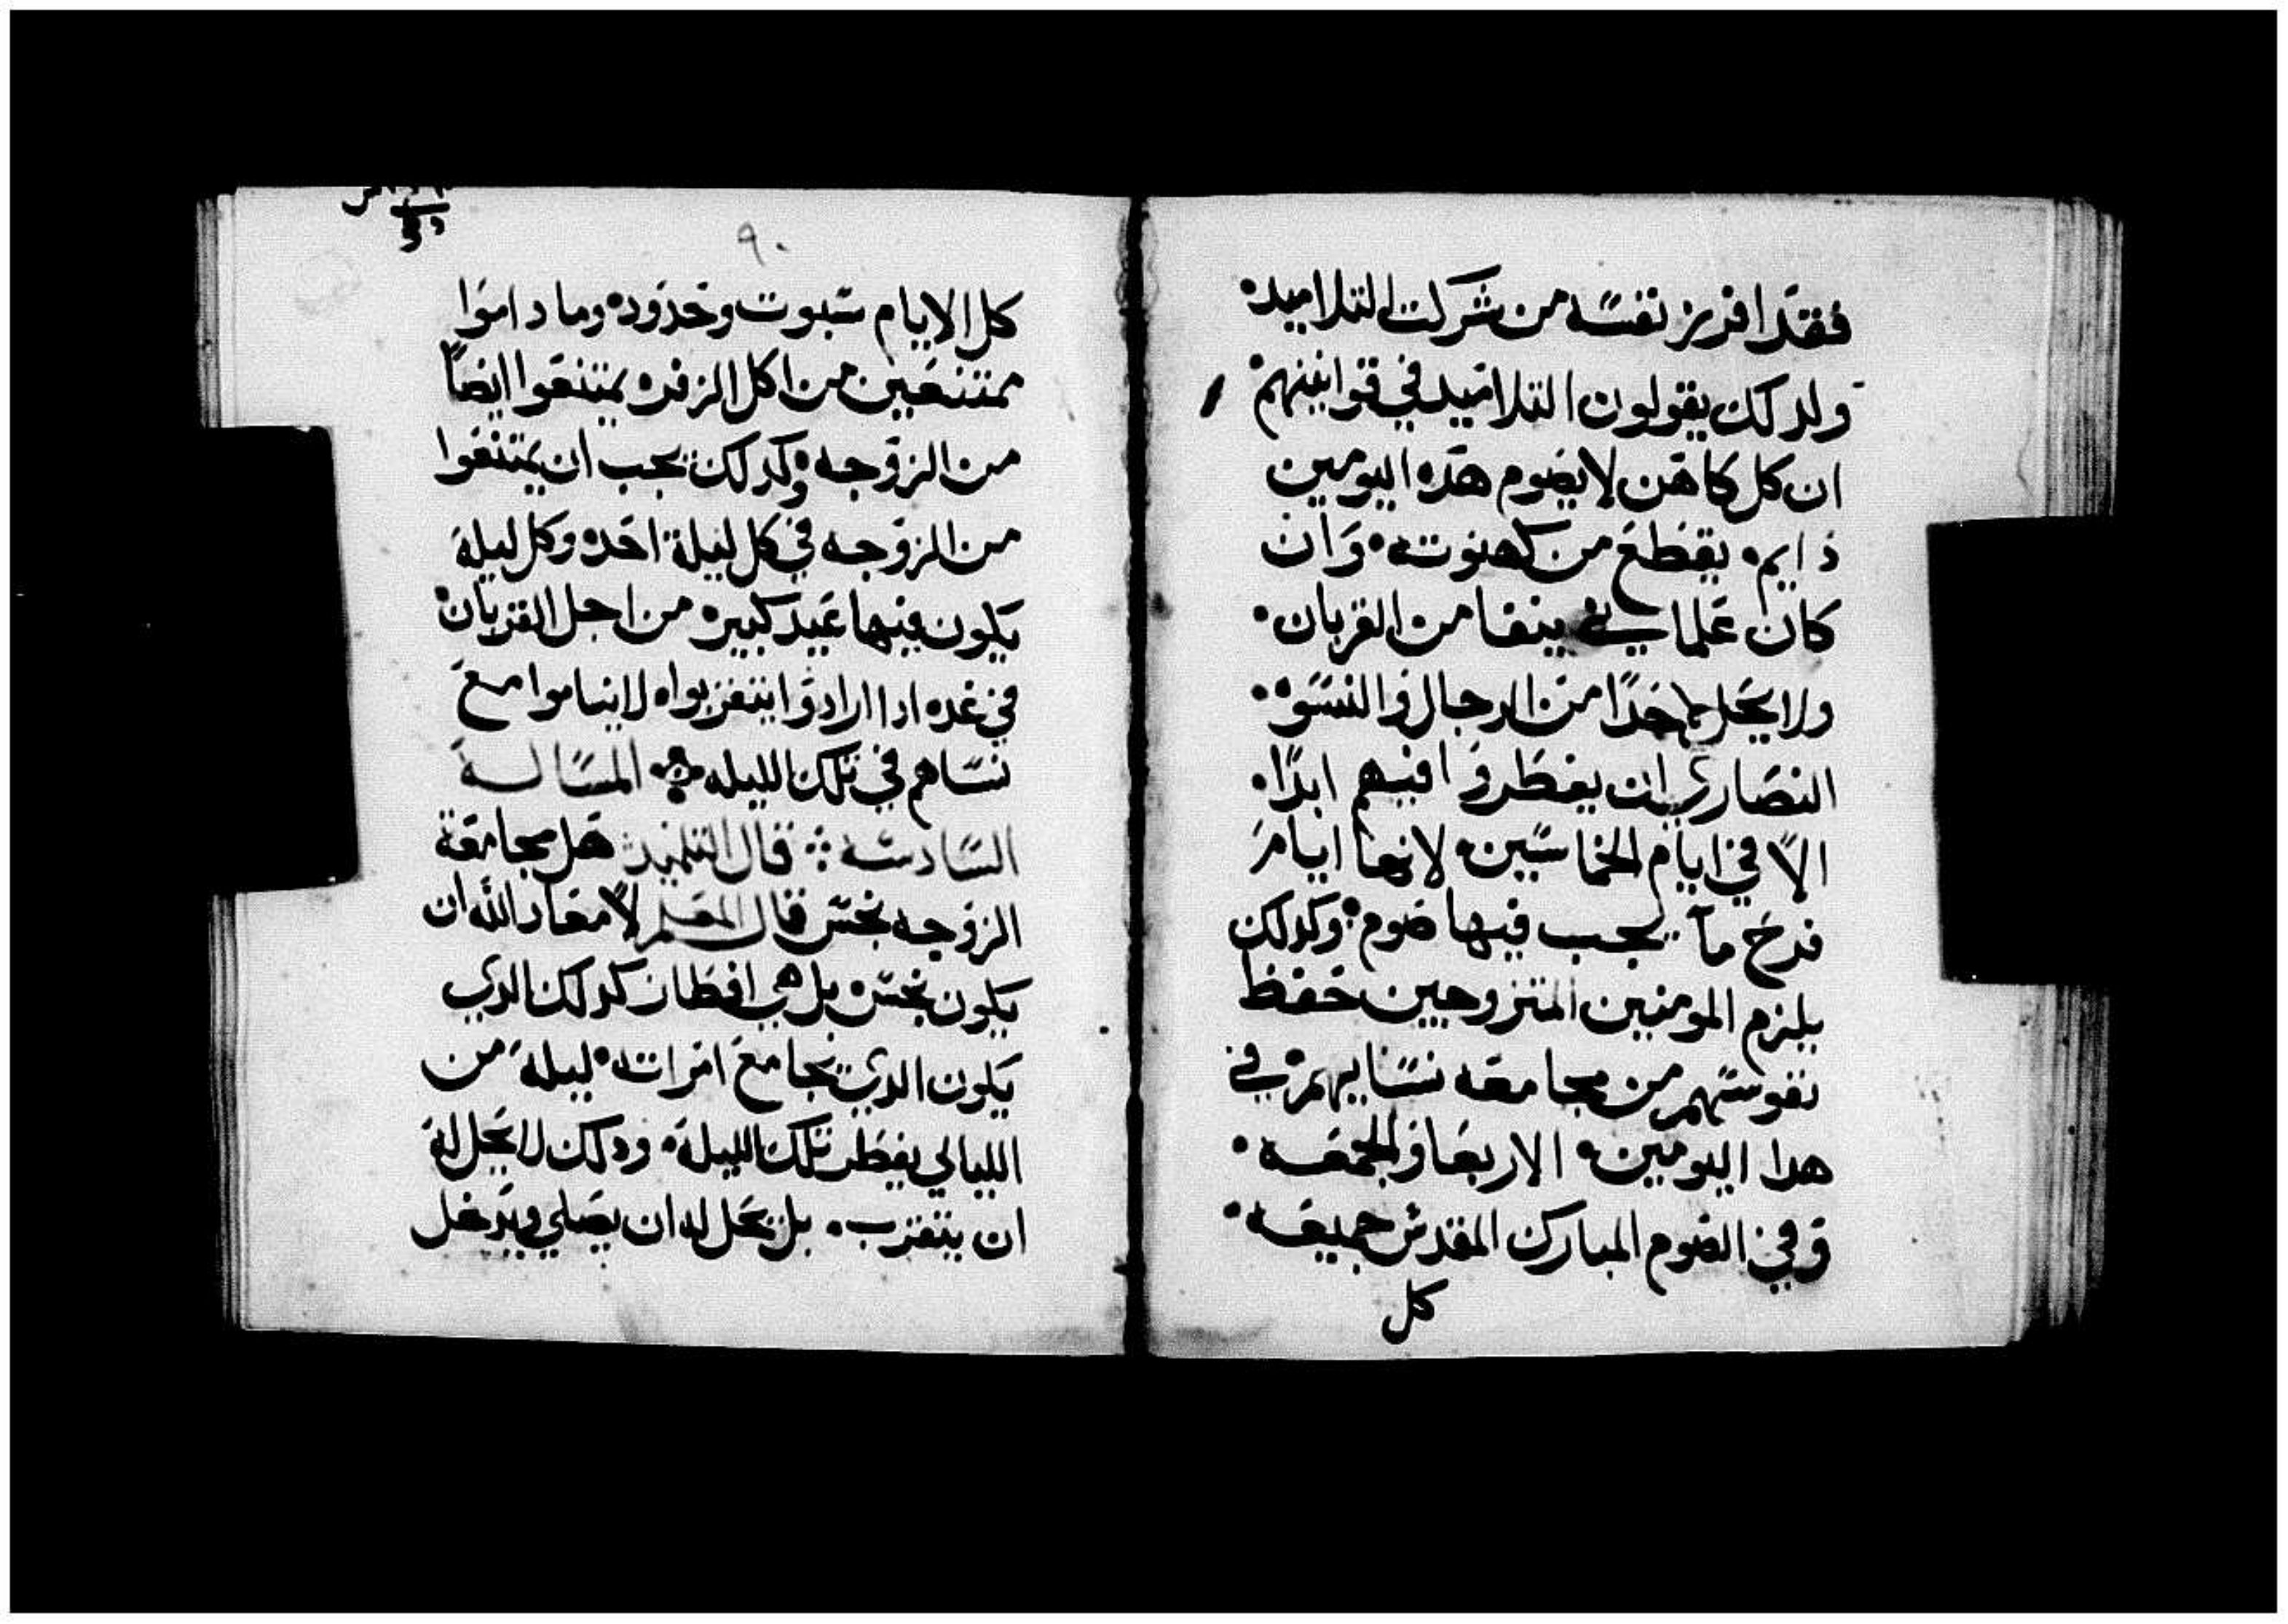 فقد افرز نفسه من شركت التلاميد
ولدلك يقولون التلاميد في قوانينهم
ان كل كاهن لا يصوم هده اليومين
دايم يقطع من كهنوته وان
كان علماني ينفا من القربان
ولا يحل لاحدا من الرجال والنسوه
النصارى ان يفطروا فيهم ابدا
الا في ايام الخماسين لانها ايام
فرح ما يجب فيها صوم وكدلك
يلزم المومنين المتزوجين حفظ
نفوسهم من مجامعه نسايهم في
هدا اليومين الاربعا والجمعه
وفي الصوم المبارك المقدس جميعه
كل
٩٠
كل الايام سبوت وحدود وما داموا
ممتنعين من اكل الزفر يمتنعوا ايضا
من الزوجه وكدلك يجب ان يمتنعوا
من الزوجه في كل ليلة احد وكل ليلة
يكون فيها عيد كبير من اجل القربان
في غده ادا ارادوا يتقربوا لا يناموا مع
نساهم في تلك الليله المساله
السادسه قال التلميد هل مجامعة
الزوجه نجس قال المعلم لا معاد الله ان
يكون نجس بل هي افطار كدلك الدي
يكون الدي يجامع امراته ليلة من
الليالي يفطر تلك الليلة ودلك لا يحل له
ان يتقرب بل يحل له ان يصلي ويدخل